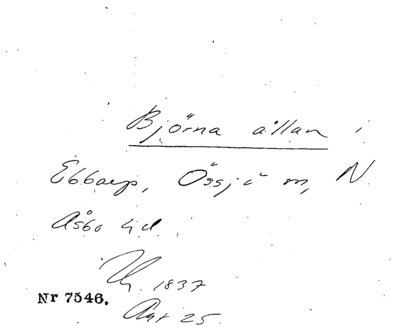 Björna ållan i
Ebbarp, Össjö m, N
Åsbo hd.
1837
Nr 7546.
Akt 25